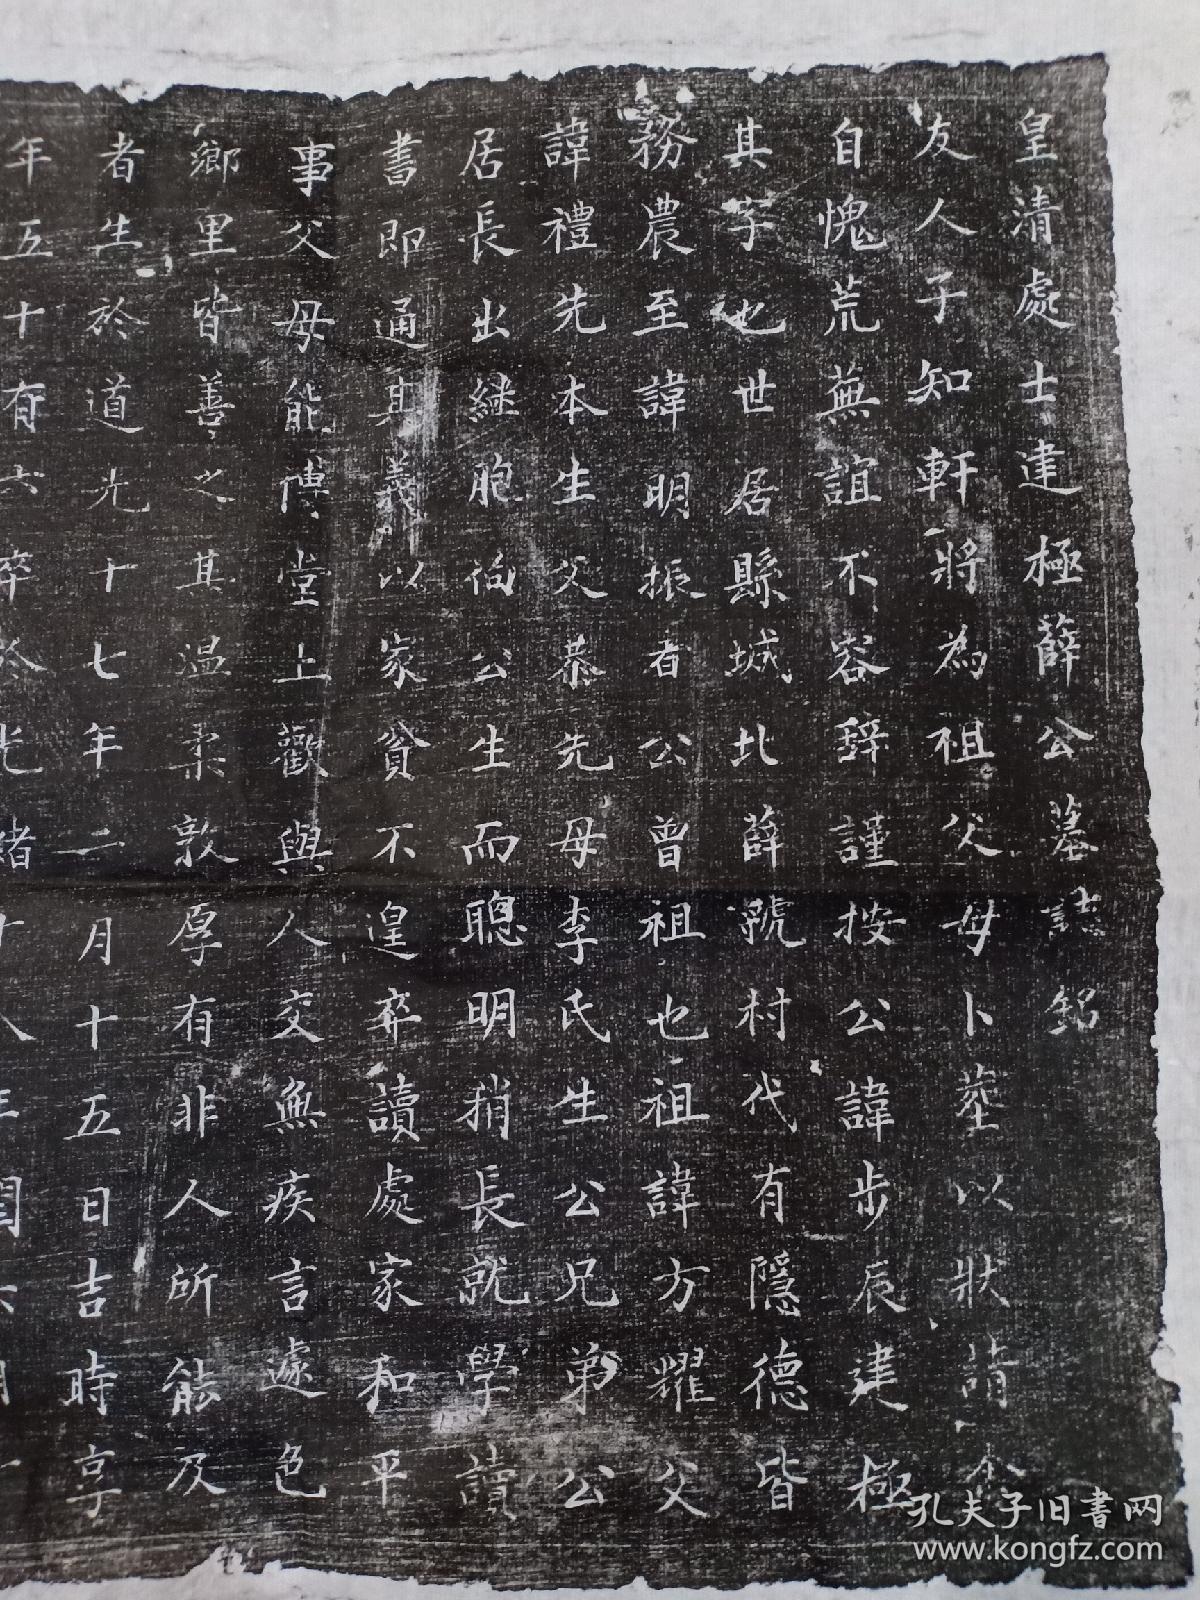 皇清處士建極薛公墓誌銘
友人子知軒將為祖父母卜塟以狀請余
自愧荒蕪誼不容辭謹按公諱步辰建極
其字也世居縣城北薛虢村代有隱德皆
務農至諱明振者公曾祖也祖諱方耀父
諱禮先本生父恭先母李氏生公兄弟公
居長出継胞伯公生而聰明稍長就學讀
書即通其義以家貧不遑卒讀處家和平
事父母能博堂上歡與人交無疾言遽色
鄉里皆善之其温柔敦厚有非人所能及
者生於道光十七年二月十五日吉時享
年五十有六卒於光緒十八年閏六月
孔夫子旧书网
www.kongfz.com